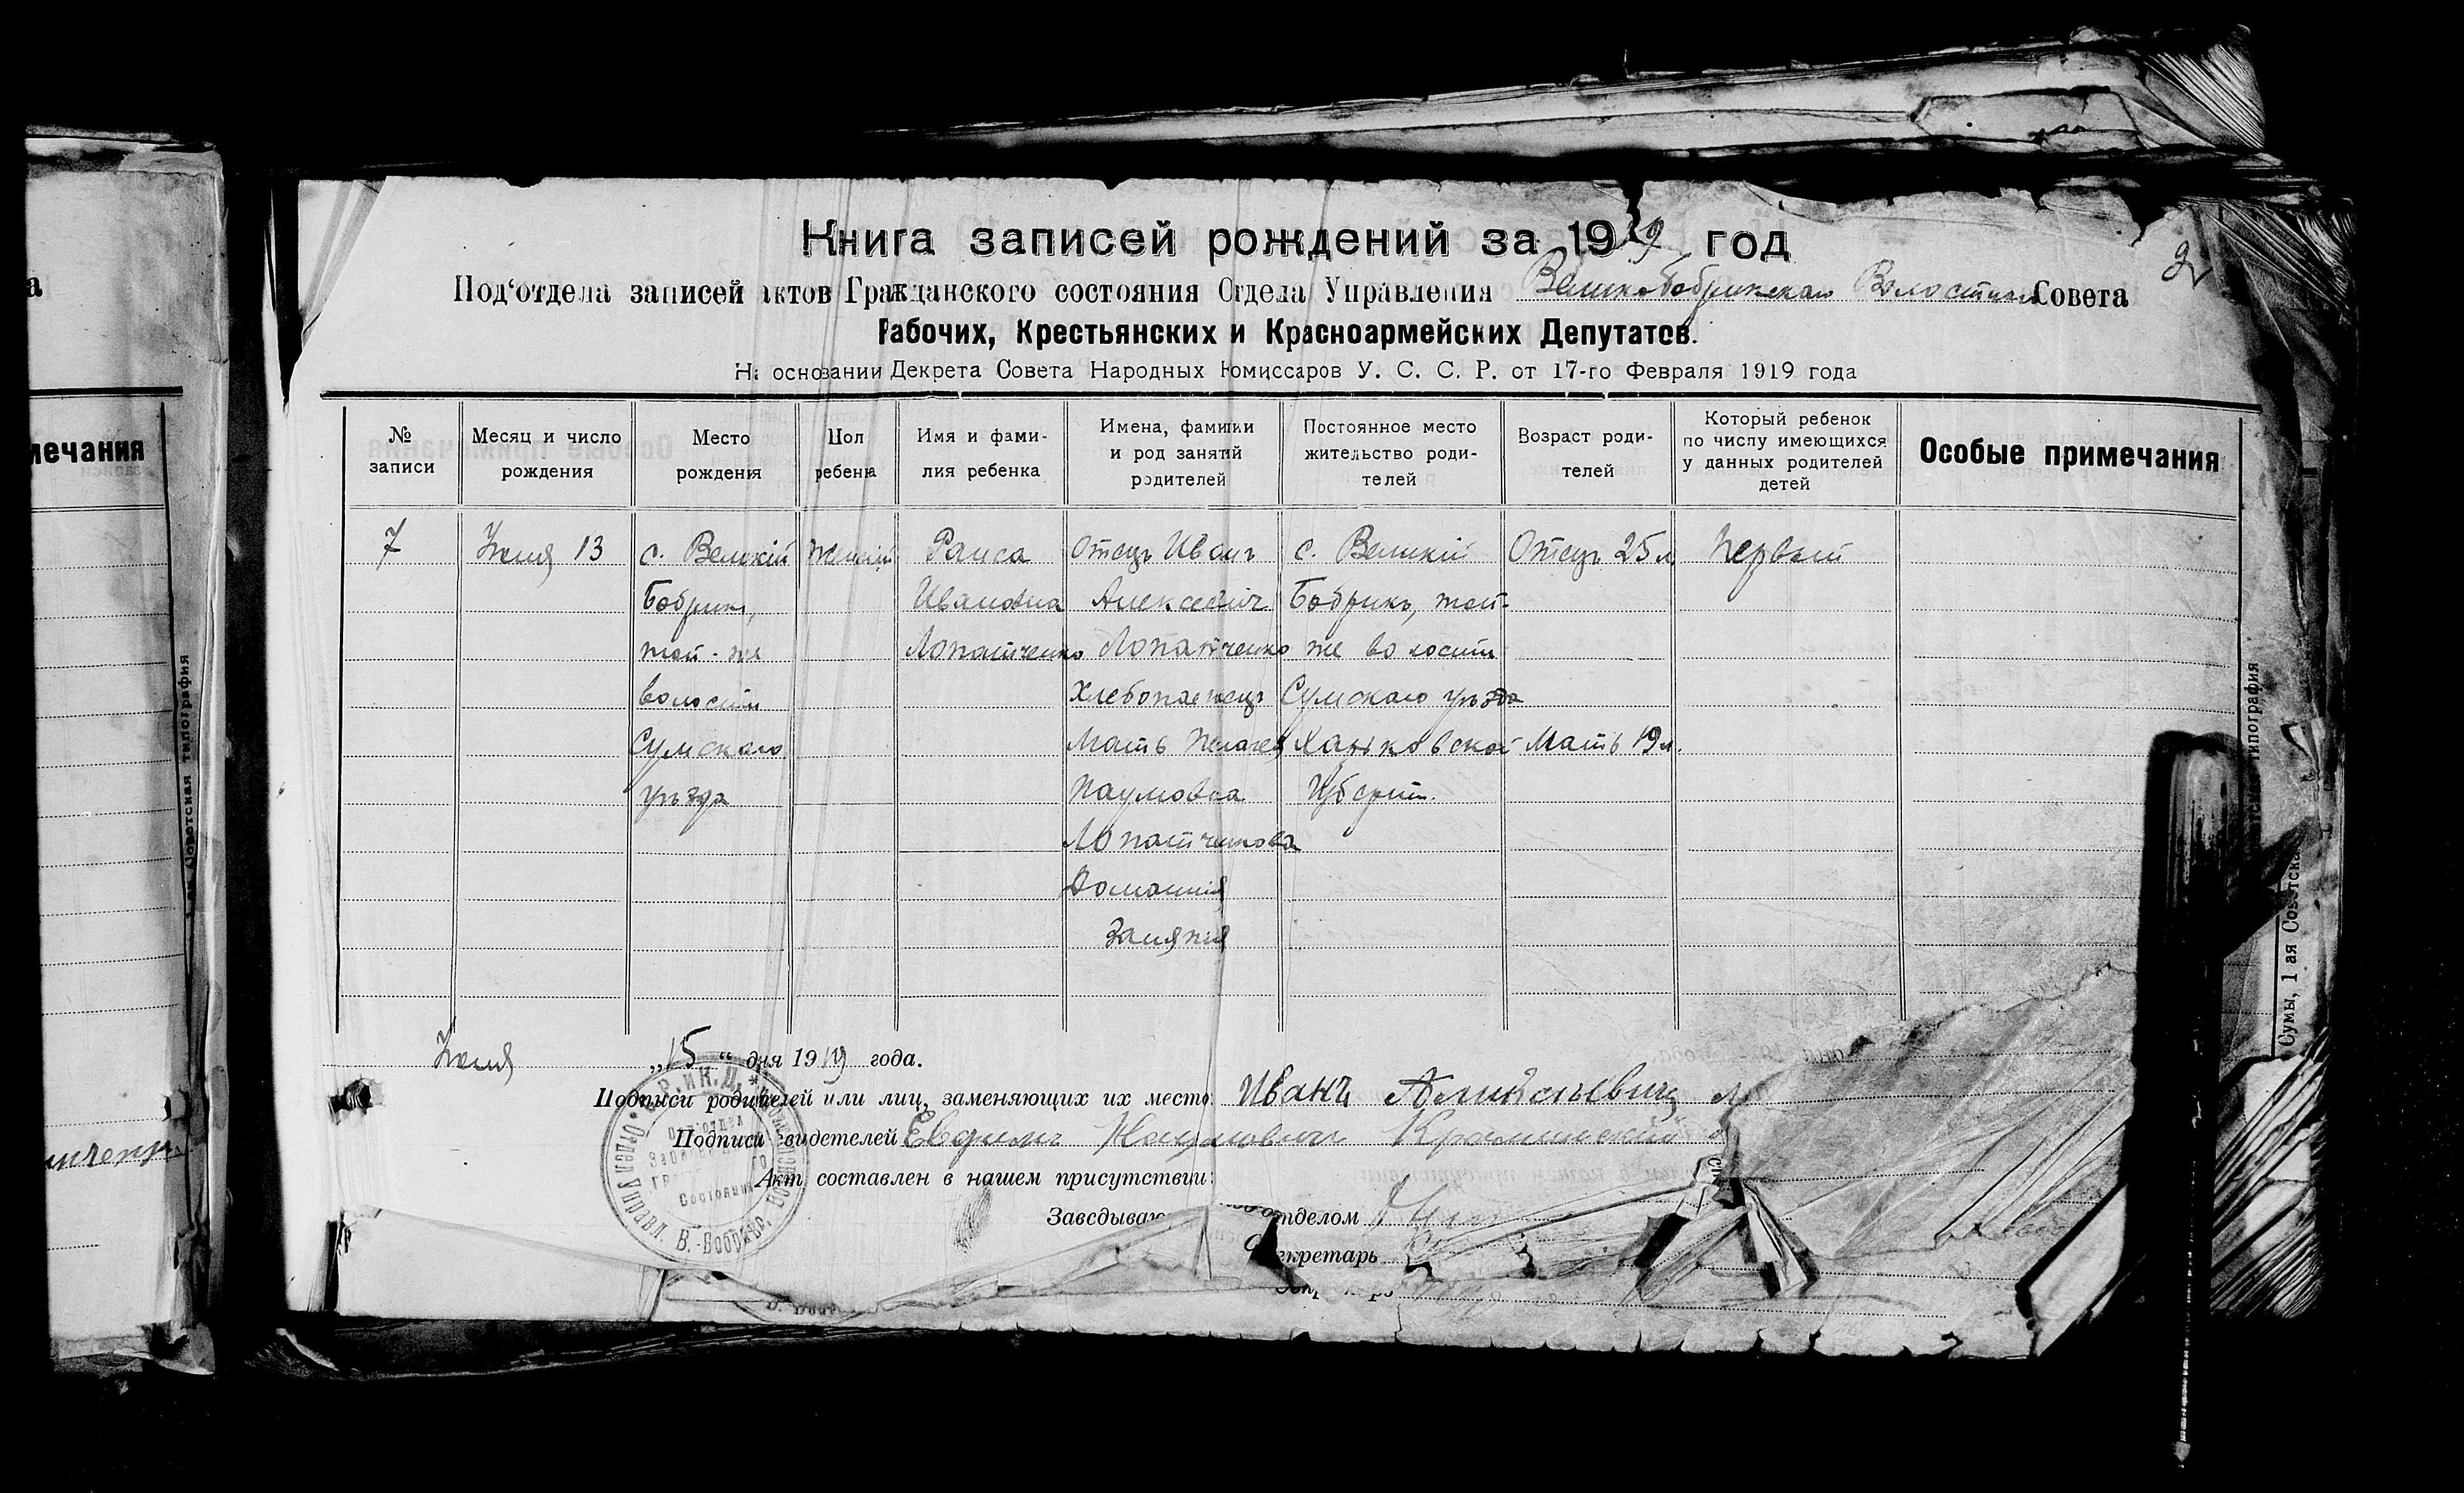 Книга записей рождений за 1919 год
Под‘отдела записей актов Гражданского состояния Отдела Управления Великобобрикскаго Волостного Совета
Рабочих, Крестьянских и Красноармейских Депутатов.
На основании Декрета Совета Народных Комиссаров У. С. С. Р. от 17-го Февраля 1919 года
№ записи
Месяц и число рождения
Место рождения
Пол ребенка
Имя и фамилия ребенка
Имена, фамилии и род занятий родителей
Постоянное место жительство родителей
Возраст родителей
Который ребенок по числу имеющихся у данных родителей детей
Особые примечания
7
Июня 13
с. Великій
Бобрик,
той-же
волости
Сумскаго
уѣзда
Женскій
Раиса
Ивановна
Лопатченко
Отецъ Иванъ
Алексѣевич
Лопатченко
Хлебопашецъ
Мать Пелагея
Наумовна
Лопатченкова
Домашнія
Занятія
с. Великій
Бобрикъ, той-
же волости
Сумскаго уѣзда
Харьковской
Губерніи.
Отецъ 25 л.
Мать 19 л.
Первый
Июня „15“ дня 1919 года.
Подписи родителей или лиц, заменяющих их место: Иванъ Алексѣевичъ
Подписи свидетелей
Наумович
Акт составлен в нашем присутствии:
отделом
Секретарь
мечания
Советская типография
Сумы, 1 ая Советская типография
Отдел Управл. В.-Бобрикс. Волостн.